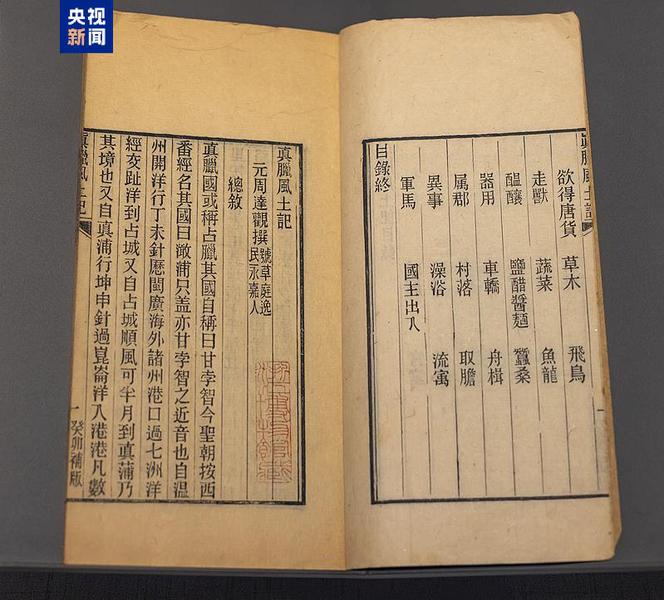 央视
新闻
真臘風土記
欲得唐貨 草木 飛鳥
走獸 蔬菜 魚龍
醖釀 鹽醋醬麵 蠶桑
器用 車轎 舟楫
属郡 村落 取膽
異事 澡浴 流寓
軍馬 國主出入
目錄終
真臘風土記
元周達觀撰 號草庭逸民永嘉人
總敘
真臘國或稱占臘其國自稱曰甘孛智今聖朝按西
番經名其國曰澉浦只盖亦甘孛智之近音也自温
州開洋行丁未針歷閩廣海外諸州港口過七洲洋
經交趾洋到占城又自占城順風可半月到真蒲乃
其境也又自真蒲行坤申針過崑崙洋入港港凡數
真臘風土記
一
癸卯補版